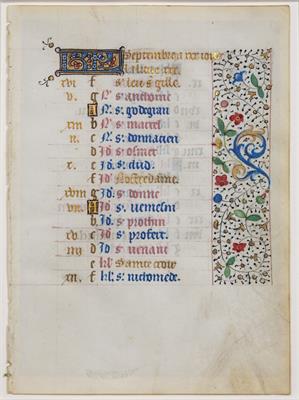 Septembre a xxx iours
La lune xxx.
xvi f s. leu s. gille.
v. g N s. anthoine
A N s. godegran
xiii b N s. macel
ii. c N s. donnacien
d Id s. osmer
x. e Id. s. clud.
f Nostre dame.
xviii g Id. s. donne
vii. A Id s.
b. Id. s. prothin
xv c Id s.
iiii d Id s. venant
e kl Sainte croix
xii. f kl. s. nichomede.